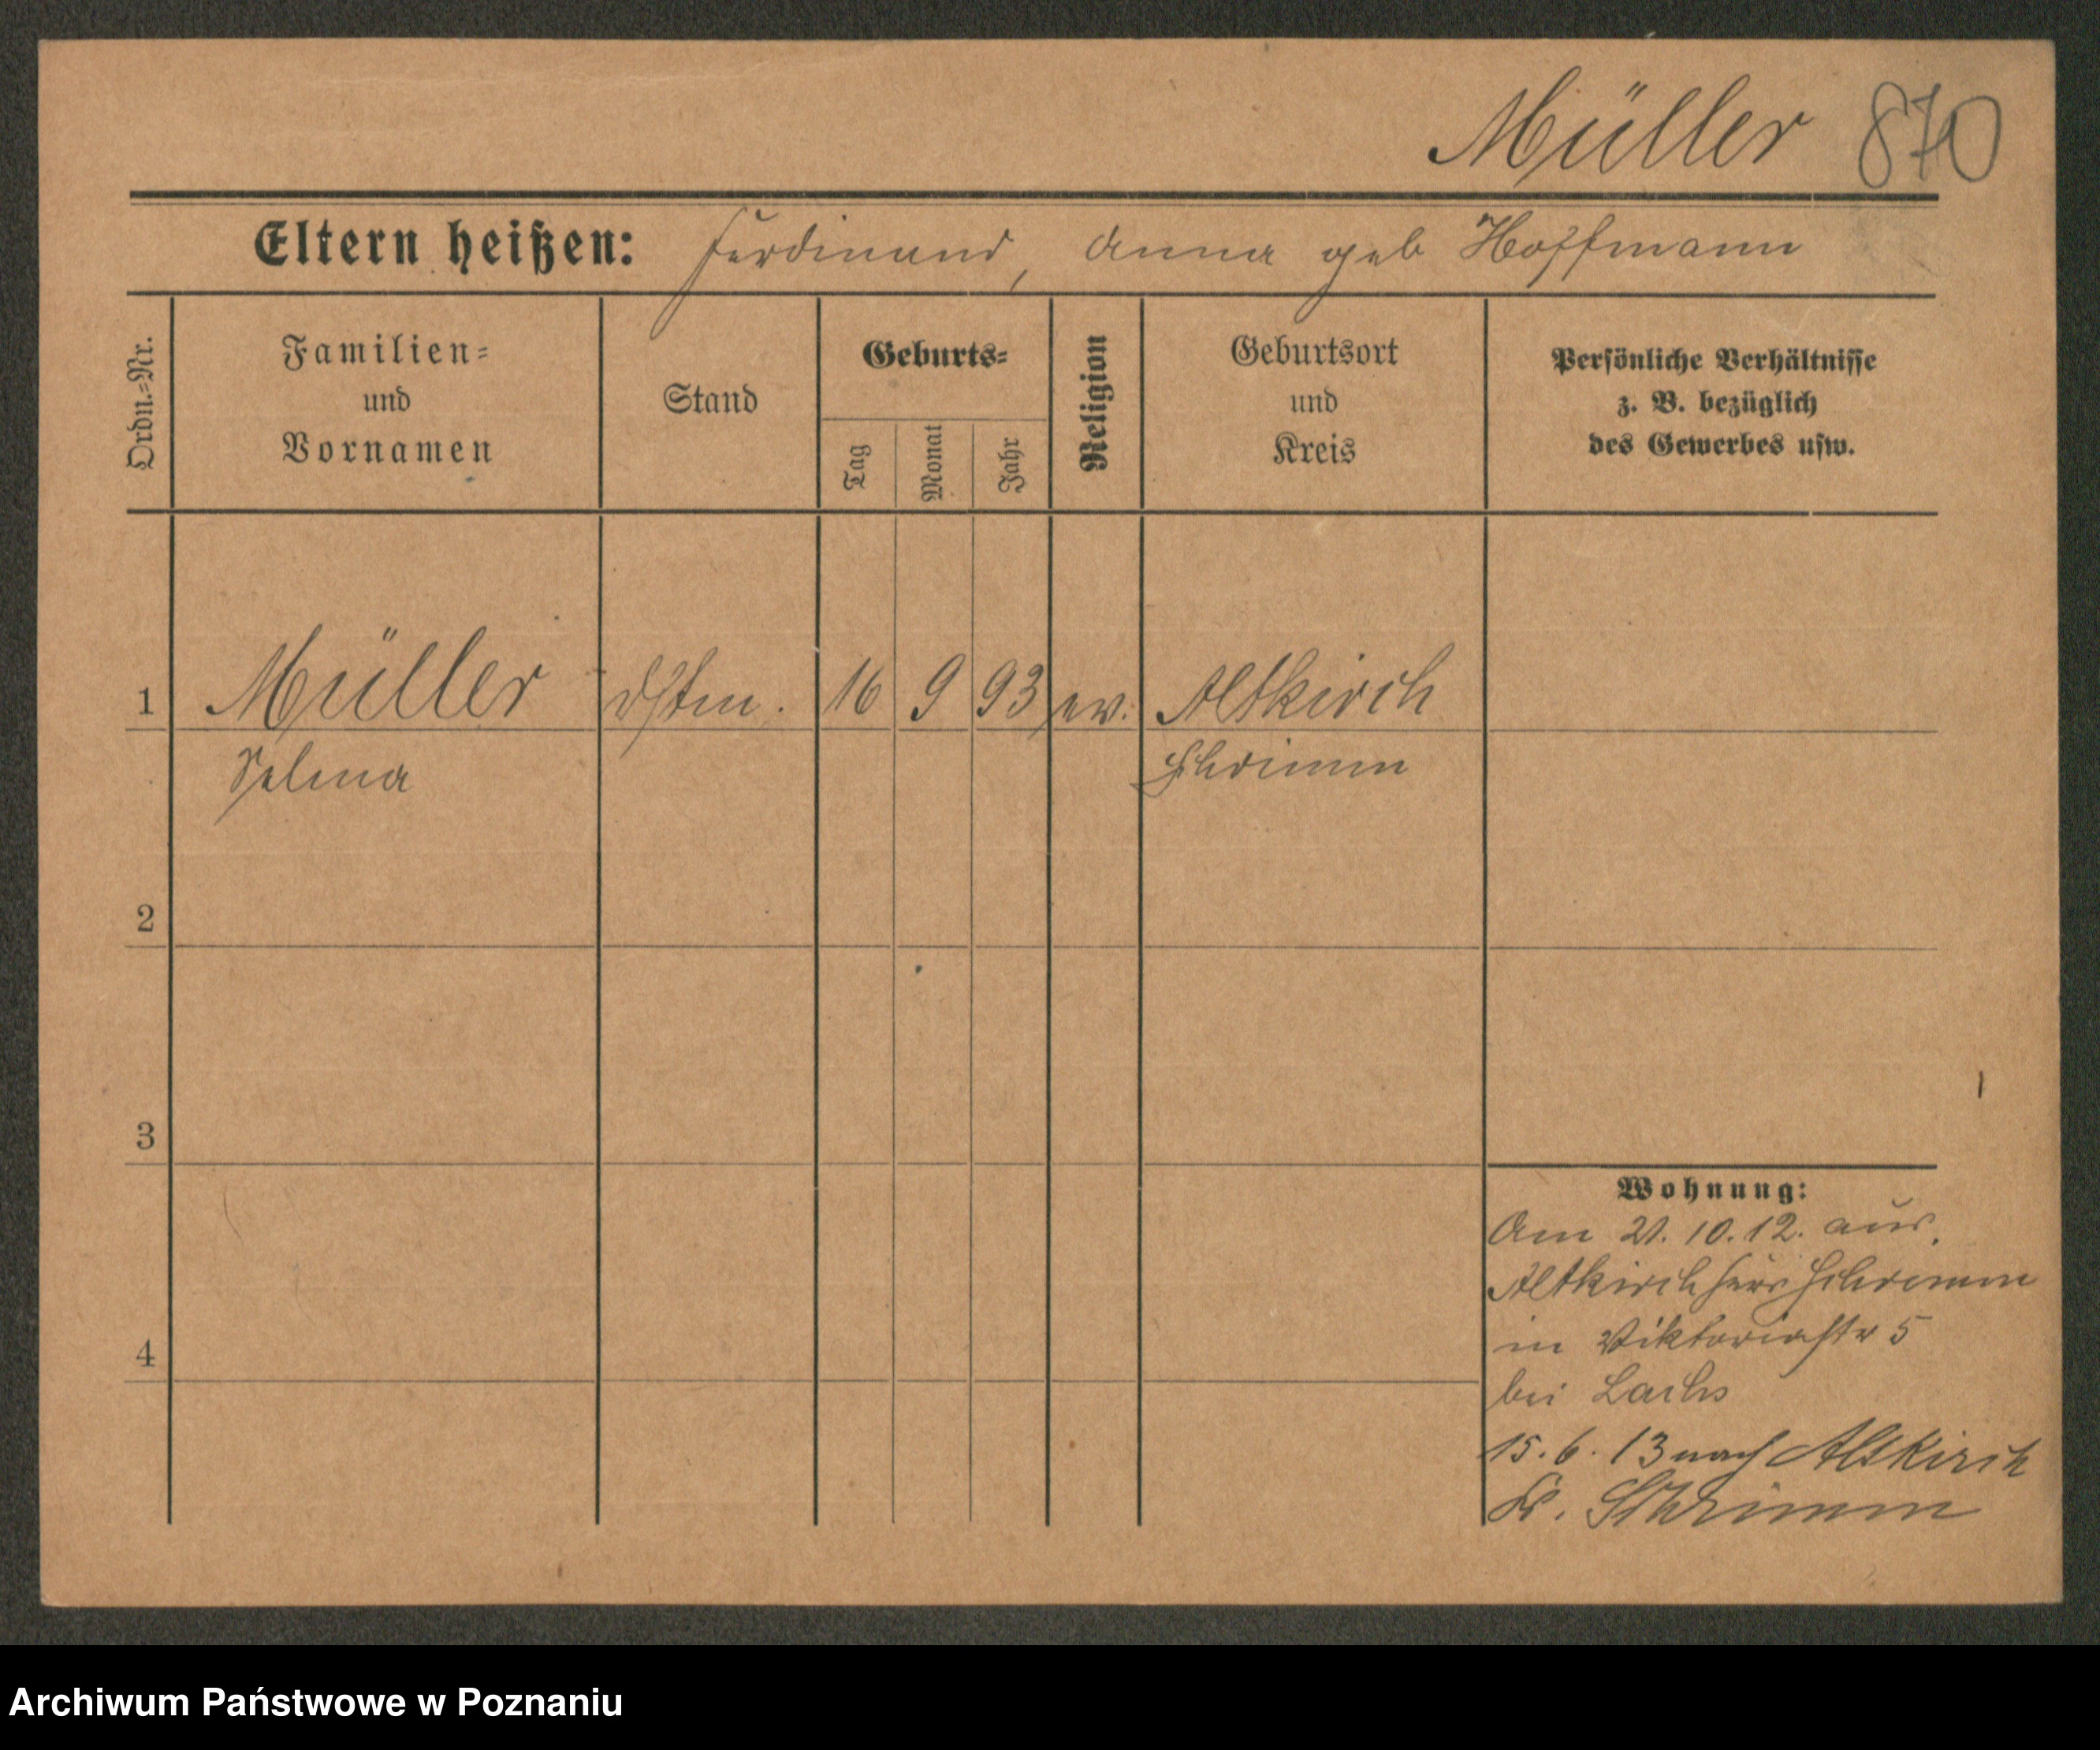 Müller 870
Eltern heißen: Ferdinand, Anna geb Hoffmann
Ordn.-Nr.
Familien-
und
Vornamen
Stand
Geburts-
Tag
Monat
Jahr
Religion
Geburtsort
und
Kreis
Persönliche Verhältnisse
z. B. bezüglich
des Gewerbes usw.
1 Müller Dstm. 16 9 93 ev. Altkirch
Selma Schrimm
2
3
4
Wohnung:
Am 21.10.12. aus
Altkirch Schrimm
in Viktoriastr 5
bei Lachs
15.6.13 nach Altkirch
Kr. Schrimm
Archiwum Państwowe w Poznaniu